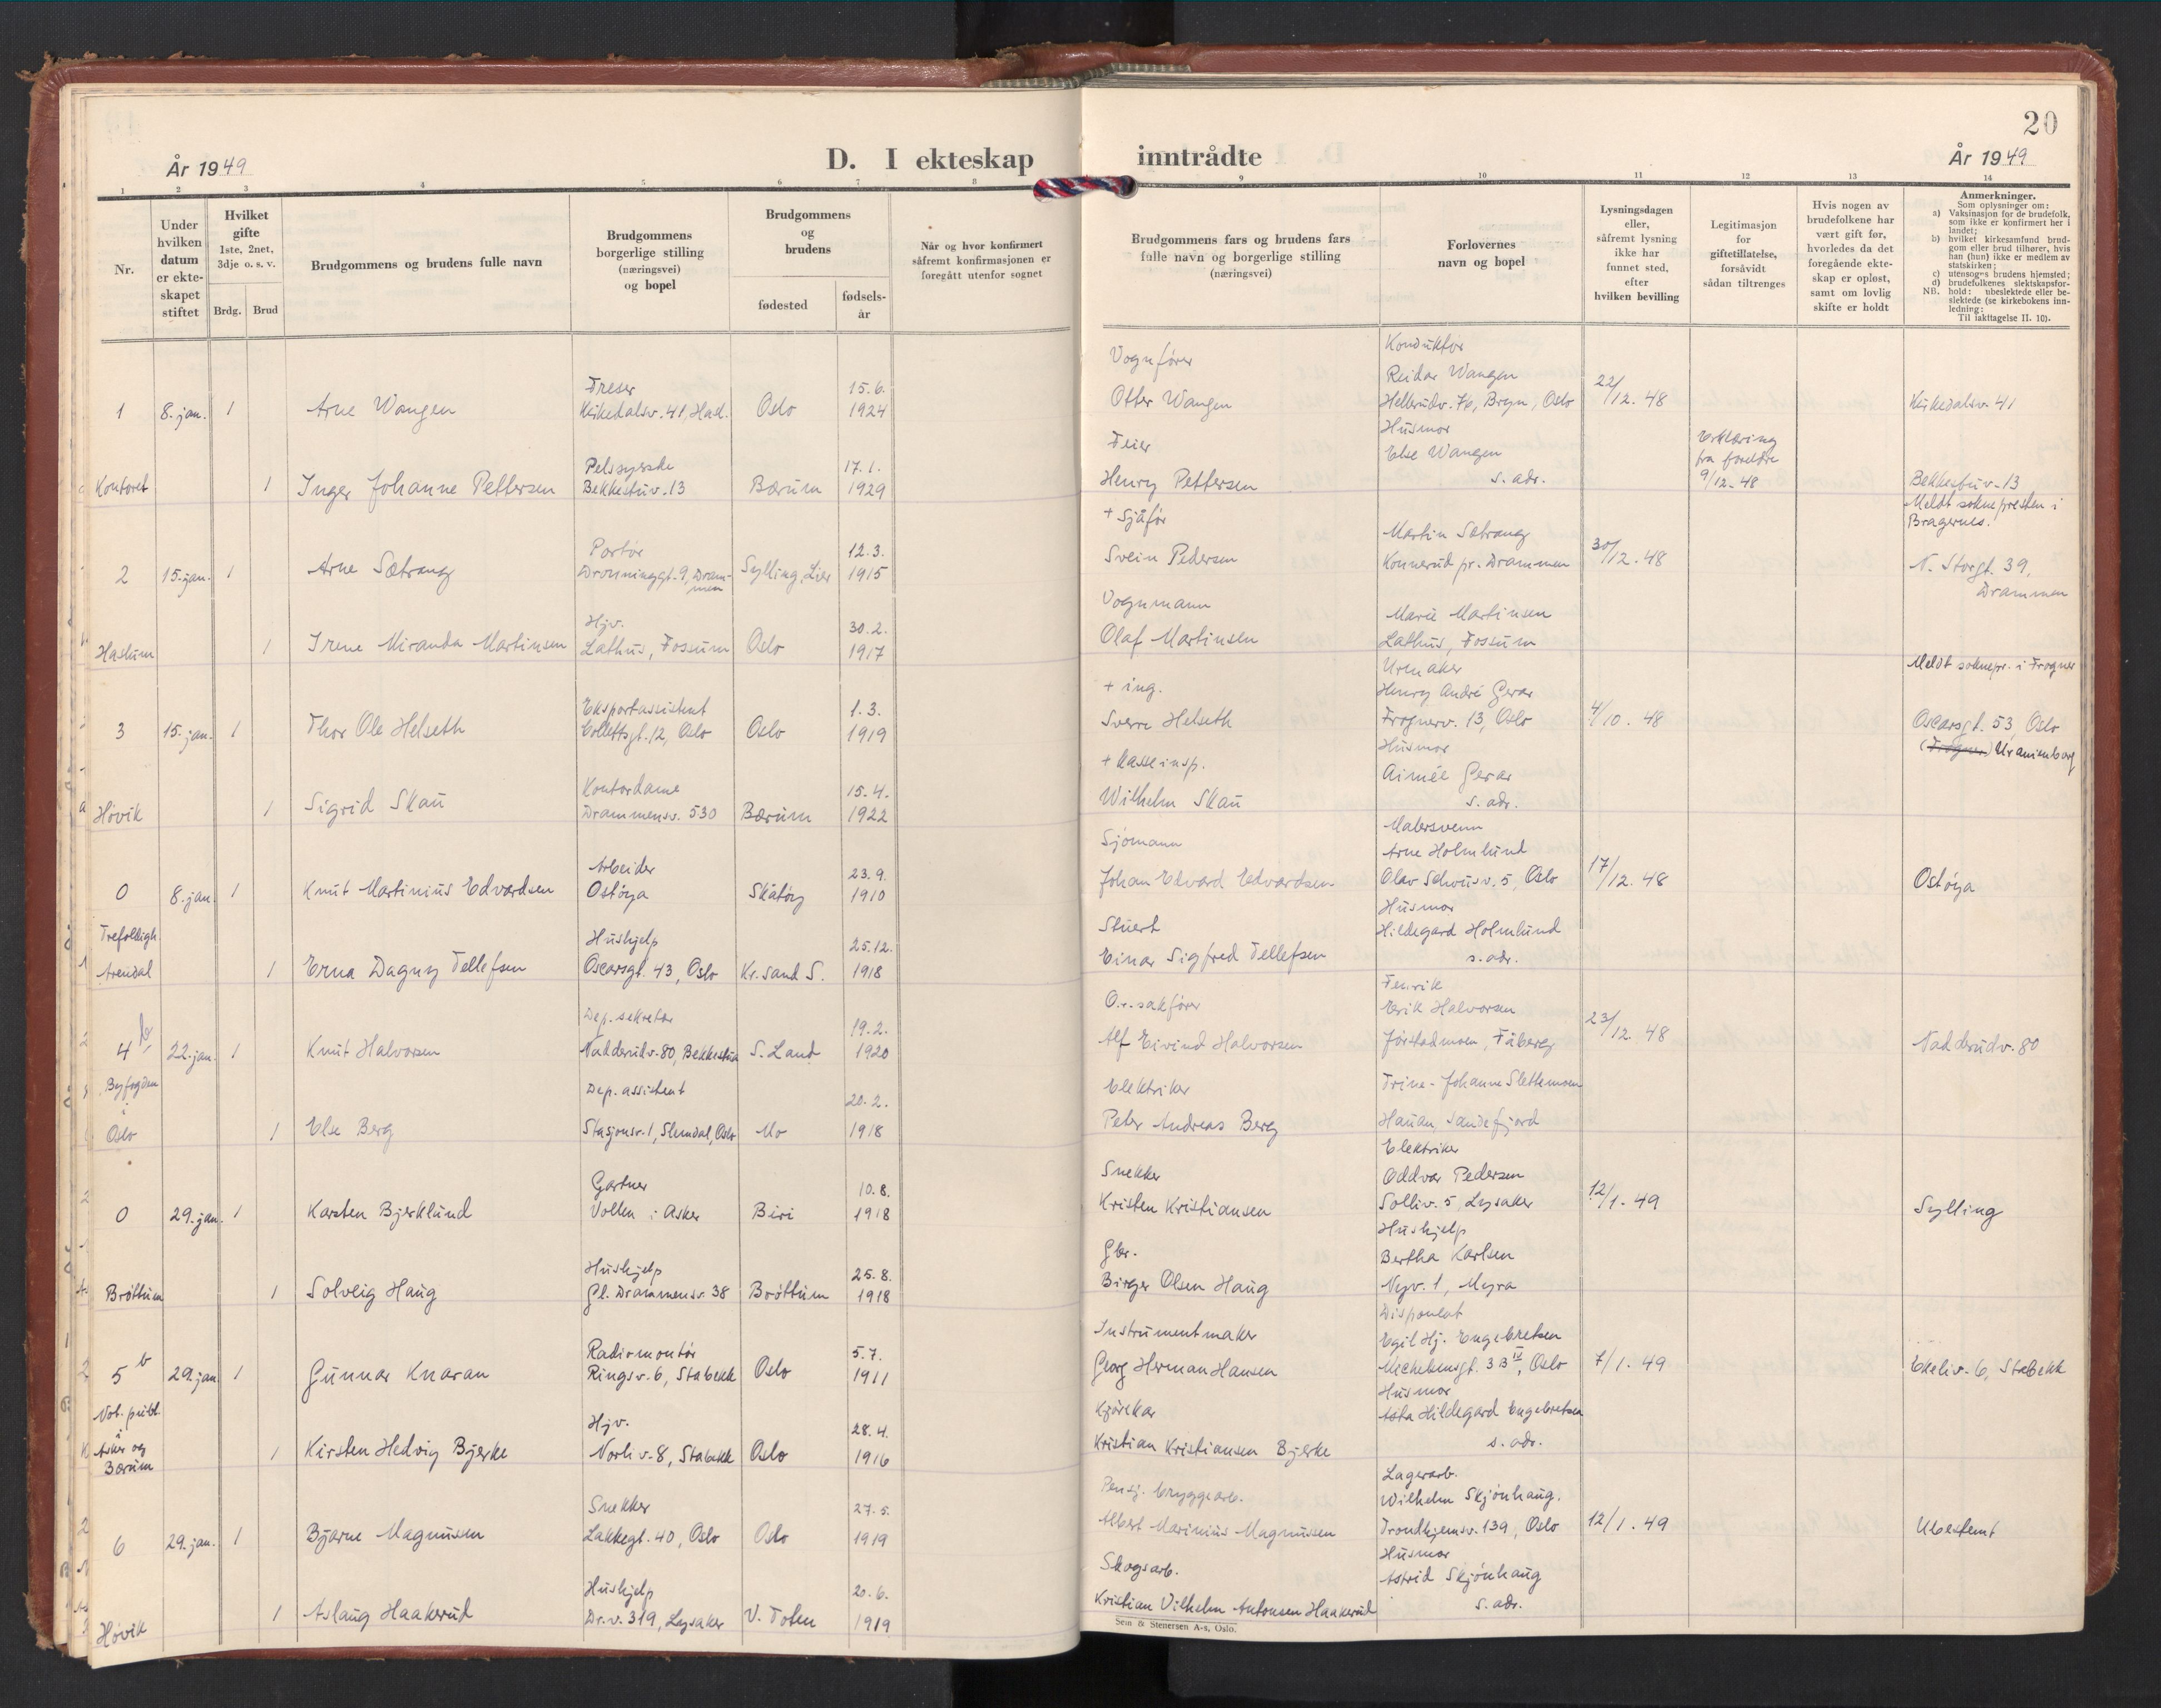 20
År 1949
D. I ekteskap inntrådte
År 1949
1 2 3 4 5 6 7 8 9 10 11 12 13 14
Nr.
Under hvilken datum er ekteskapet stiftet
Hvilket gifte
1ste, 2net, 3dje o. s. v.
Brdg. Brud
Brudgommens og brudens fulle navn
Brudgommens borgerlige stilling (næringsvei) og bopel
Brudgommens og brudens
fødested
fødselsår
Når og hvor konfirmert såfremt konfirmasjonen er foregått utenfor sognet
Brudgommens fars og brudens fars fulle navn og borgerlige stilling (næringsvei)
Forlovernes navn og bopel
Lysningsdagen eller, såfremt lysning ikke har funnet sted, efter hvilken bevilling
Legitimasjon for giftetillatelse, forsåvidt sådan tiltrenges
Hvis nogen av brudefolkene har vært gift før, hvorledes da det foregående ekteskap er opløst, samt om lovlig skifte er holdt
Anmerkninger.
Som oplysninger om:
a) Vaksinasjon for de brudefolk, som ikke er konfirmert her i landet;
b) hvilket kirkesamfund brudgom eller brud tilhører, hvis han (hun) ikke er medlem av statskirken;
c) utensogns brudens hjemsted;
d) brudefolkenes slektskapsforhold: ubeslektede eller beslektede (se kirkebokens innledning:
NB. Til iakttagelse II. 10).
1 8. jan. 1 Arne Wangen
Freser
Kirkedalsv. 41, Hasl. Oslo 15.6. 1924
Vognfører
Otter Wangen
Konduktør
Reidar Wangen
Hellerudv. 76, Bryn, Oslo
22/12. 48
Kirkedalsv. 41
Kontoret 1 Inger Johanne Pettersen
Pelssyerske
Bekkestuv. 13 Bærum 17.1. 1929
Feier
Henry Pettersen
Husmor
Else Wangen
s. adr.
Erklæring fra foreldre 9/12. 48
Bekkestuv. 13
2 15. jan. 1 Arne Sætrang
Portør
Dronninggt. 9, Drammen Sylling, Lier 12.3. 1915
+ Sjåfør
Svein Pedersen
Martin Sætrang
Konnerud pr. Drammen
30/12. 48
Meldt sokneprosten i Bragernes.
N. Storgt. 39, Drammen
Haslum 1 Irene Miranda Martinsen
Hjv.
Lathus, Fossum Oslo 30.2. 1917
Vognmann
Olaf Martinsen
Marie Martinsen
Lathus, Fossum
3 15. jan. 1 Thor Ole Helseth
Eksportassistent
Collettsgt. 12, Oslo Oslo 1.3. 1919
+ ing.
Sverre Helseth
Urmaker
Henry André Gerar
Frognerv. 13, Oslo
4/10. 48
Meldt soknepr. i Frogner
Oscarsgt. 53, Oslo
(Frogner) Uranienborg
Høvik 1 Sigrid Skau
Kontordame
Drammensv. 530 Bærum 15.4. 1922
+ kasseinsp.
Wilhelm Skau
Husmor
Aimée Gerar
s. adr.
0 8. jan 1 Knut Martinius Edvardsen
Arbeider
Ostøya Skåtøy 23.9. 1910
Sjømann
Johan Edvard Edvardsen
Malersvenn
Arne Holmlund
Olav Schousv. 5, Oslo
17/12. 48
Ostøya
Trefoldigh. Arendal 1 Erna Dagny Tellefsen
Hushjelp
Oscarsgt. 43, Oslo Kr.sand S. 25.12. 1918
Stuert
Einar Sigfred Tellefsen
Husmor
Hildegard Holmlund
s. adr.
4 b 22. jan. 1 Knut Halvorsen
Dep. sekretær
Nadderudv. 80, Bekkestua S. Land 19.2. 1920
O.r. sakfører
Alf Eivind Halvorsen
Fenrik
Erik Halvorsen
Jørstadmoen, Fåberg
23/12. 48
Nadderudv. 80
Byfogden i Oslo 1 Else Berg
Dep. assistent
Stasjonsv. 1, Slemdal, Oslo Mo 20.2. 1918
Elektriker
Peter Andreas Berg
Trine-Johanne Slettemoen
Hauan, Sandefjord
0 29. jan. 1 Karsten Bjerklund
Gartner
Vollen i Asker Biri 10.8. 1918
Snekker
Kristen Kristiansen
Elektriker
Oddvar Pedersen
Solliv. 5, Lysaker
12/1. 49
Sylling
Brøttum 1 Solveig Haug
Hushjelp
Gl. Drammensv. 38 Brøttum 25.8. 1918
Gbr.
Birger Olsen Haug
Hushjelp
Bertha Karlsen
Nyv. 1, Myra
5 b 29. jan 1 Gunnar Knaran
Radiomontør
Ringsv. 6, Stabekk Oslo 5.7. 1911
Instrumentmaker
Georg Herman Hansen
Disponent
Egil Hj. Engebretsen
Mechelensgt. 3 B IV, Oslo
7/1. 49
Ekeliv. 6, Stabekk
Not. publ. i Asker og Bærum 1 Kirsten Hedvig Bjerke
Hjv.
Norliv. 8, Stabekk Oslo 28.4. 1916
Kjørekar
Kristian Kristiansen Bjerke
Husmor
Asta Hildegard Engebretsen
s. adr.
6 29. jan. 1 Bjarne Magnussen
Snekker
Lakkegt. 40, Oslo Oslo 27.5. 1919
Pensj. bryggearb.
Albert Marinius Magnussen
Lagerarb.
Wilhelm Skjønhaug.
Trondhjemsv. 139, Oslo
12/1. 49
Ubestemt
Høvik 1 Aslaug Haakerud
Hushjelp
Dr.v. 319, Lysaker V. Toten 20.6. 1919
Skogsarb.
Kristian Vilhelm Antonsen Haakerud
Husmor
Astrid Skjønhaug
s. adr.
Sem & Stenersen A-s, Oslo.